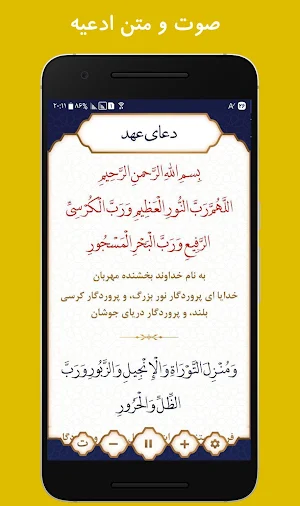 صوت و متن ادعیه
۲۰:۱۱ ۸۶%
۲۶
دعای عهد
بِسمِ اللهِ الرَّحمنِ الرَّحیمِ
اَللّهُمَّ رَبَّ النُّورِ الْعَظیمِ وَ رَبَّ الْکُرْسِیِّ
الرَّفیعِ وَ رَبَّ الْبَحْرِ الْمَسْجُورِ
به نام خداوند بخشنده مهربان
خدایا ای پروردگار نور بزرگ، و پروردگار کرسی
بلند، و پروردگار دریای جوشان
وَ مُنْزِلَ التَّوْراةِ وَ الْاِنْجیلِ وَ الزَّبُورِ وَ رَبَّ
الظِّلِّ وَ الْحَرُورِ
ت